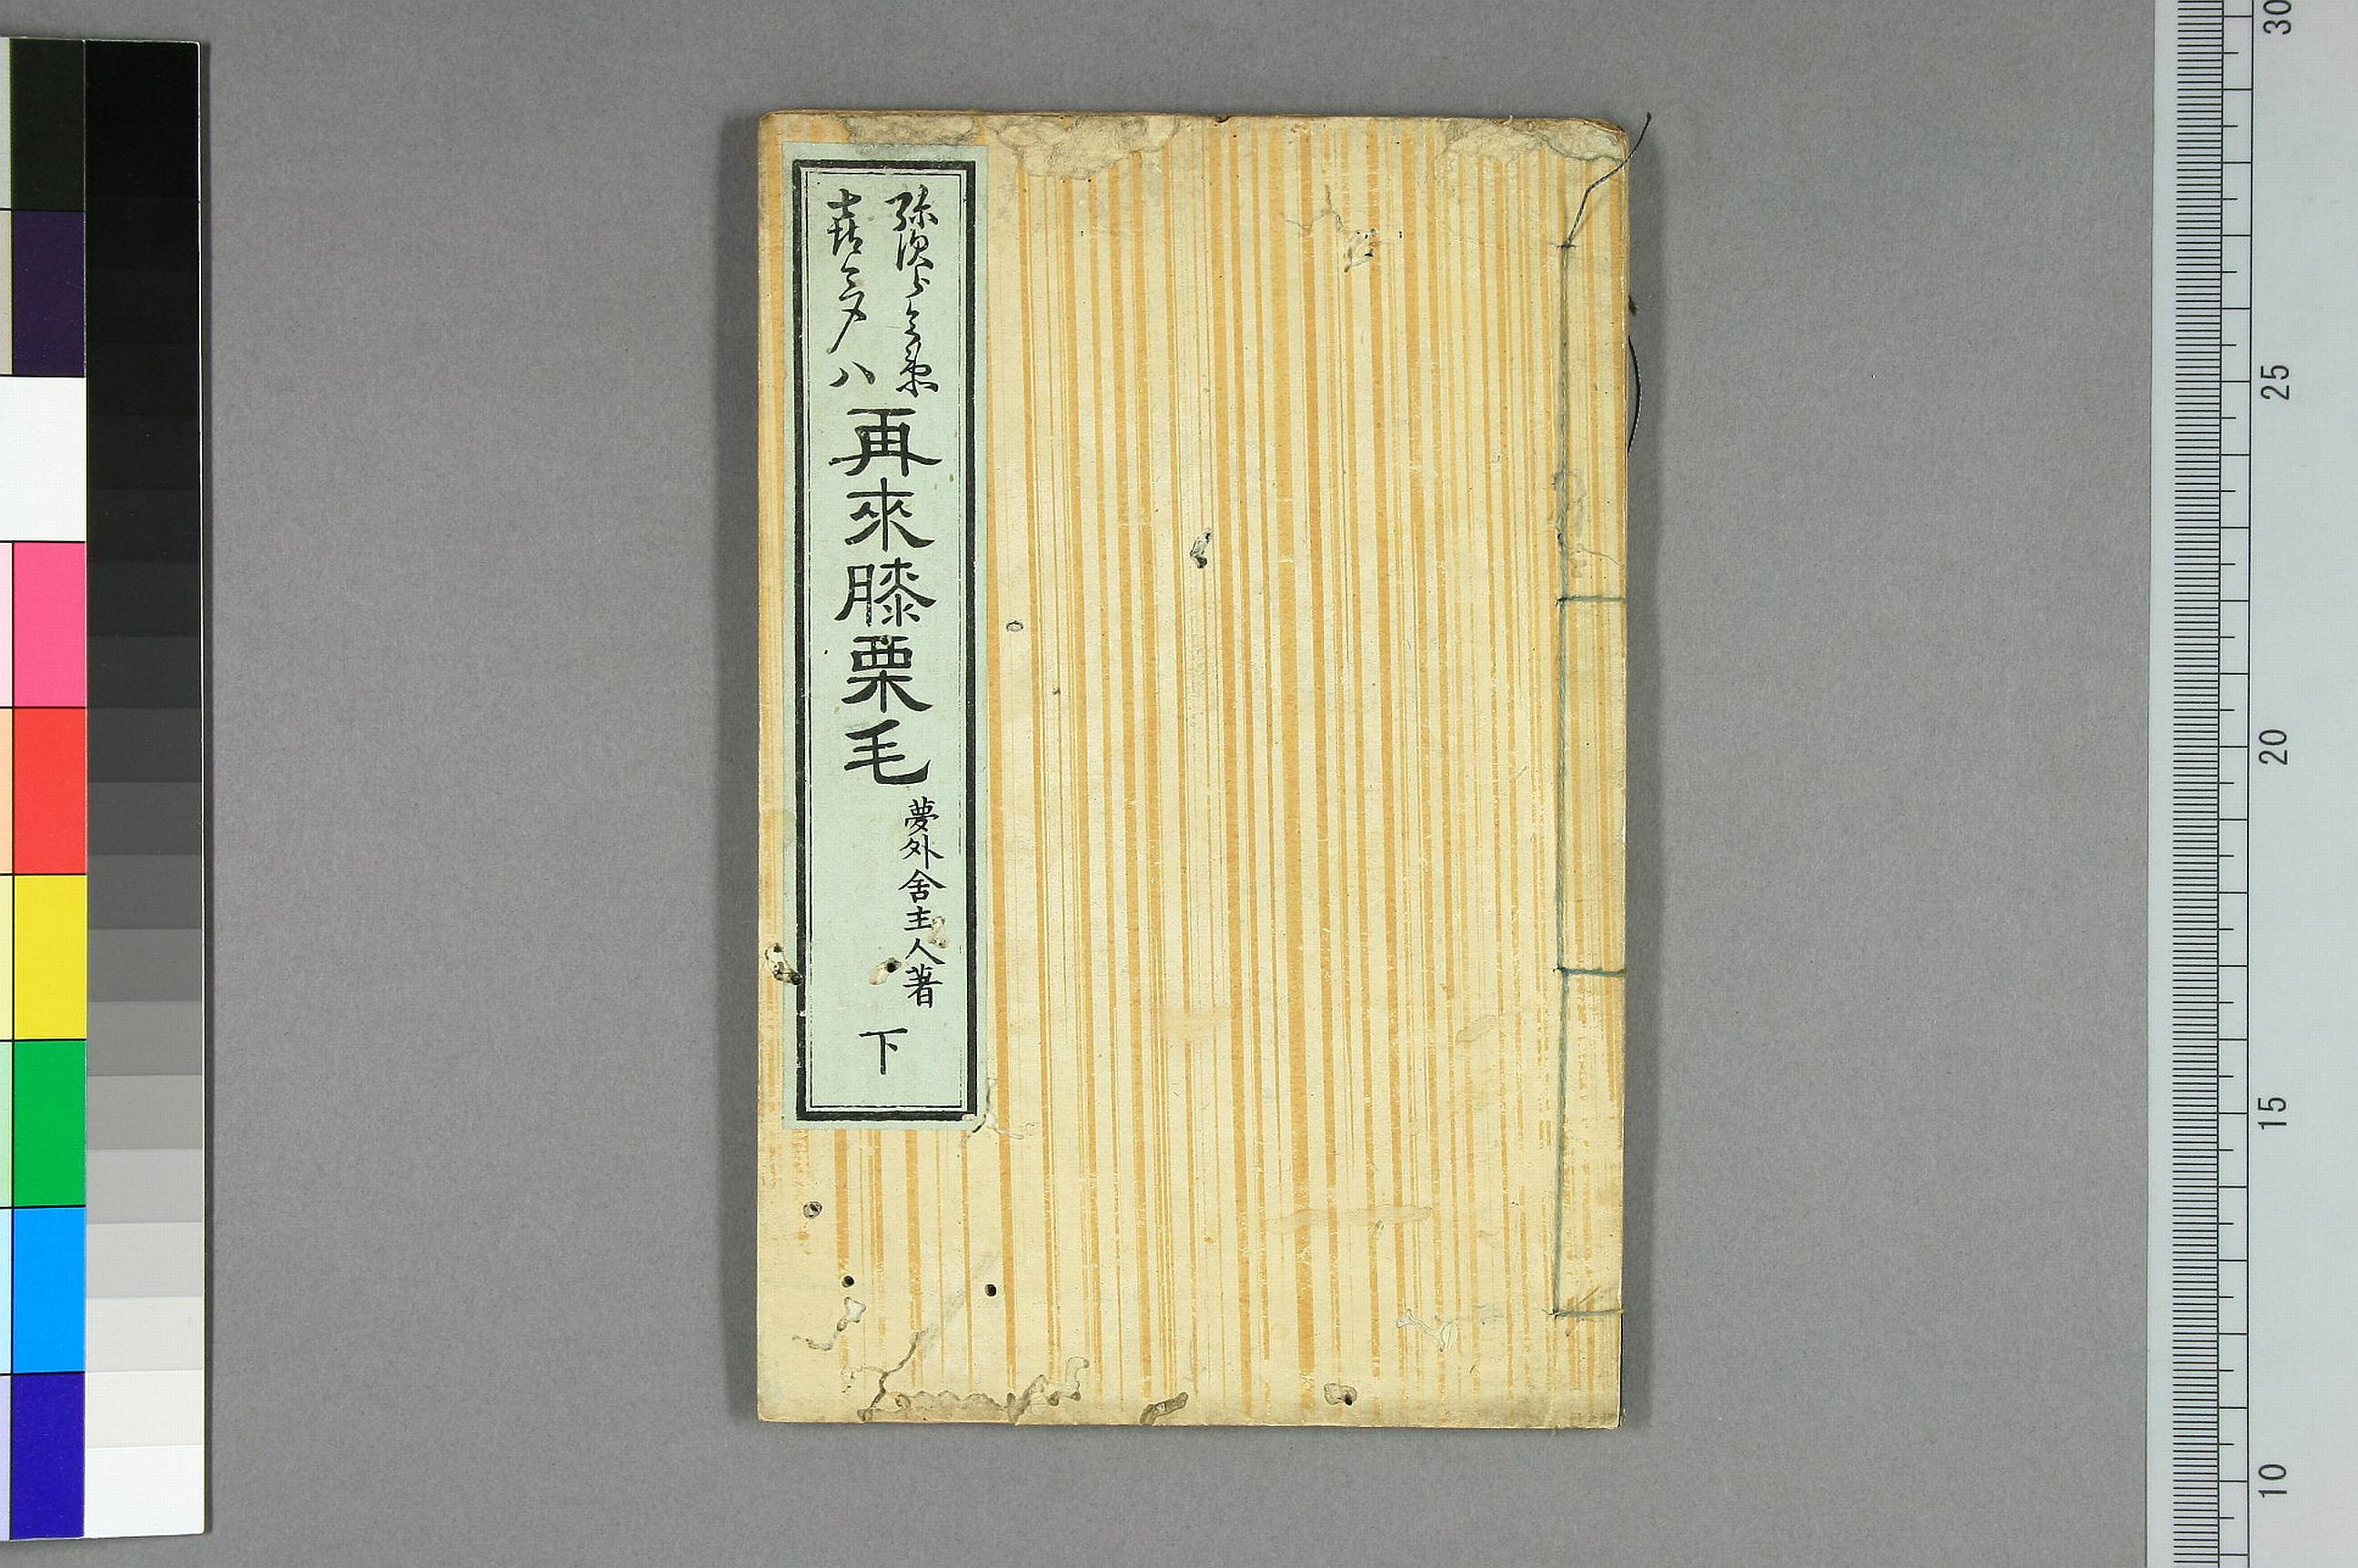 弥次郎兵衛
喜多八
再來膝栗毛
夢外舍主人著
下
30
25
20
15
10